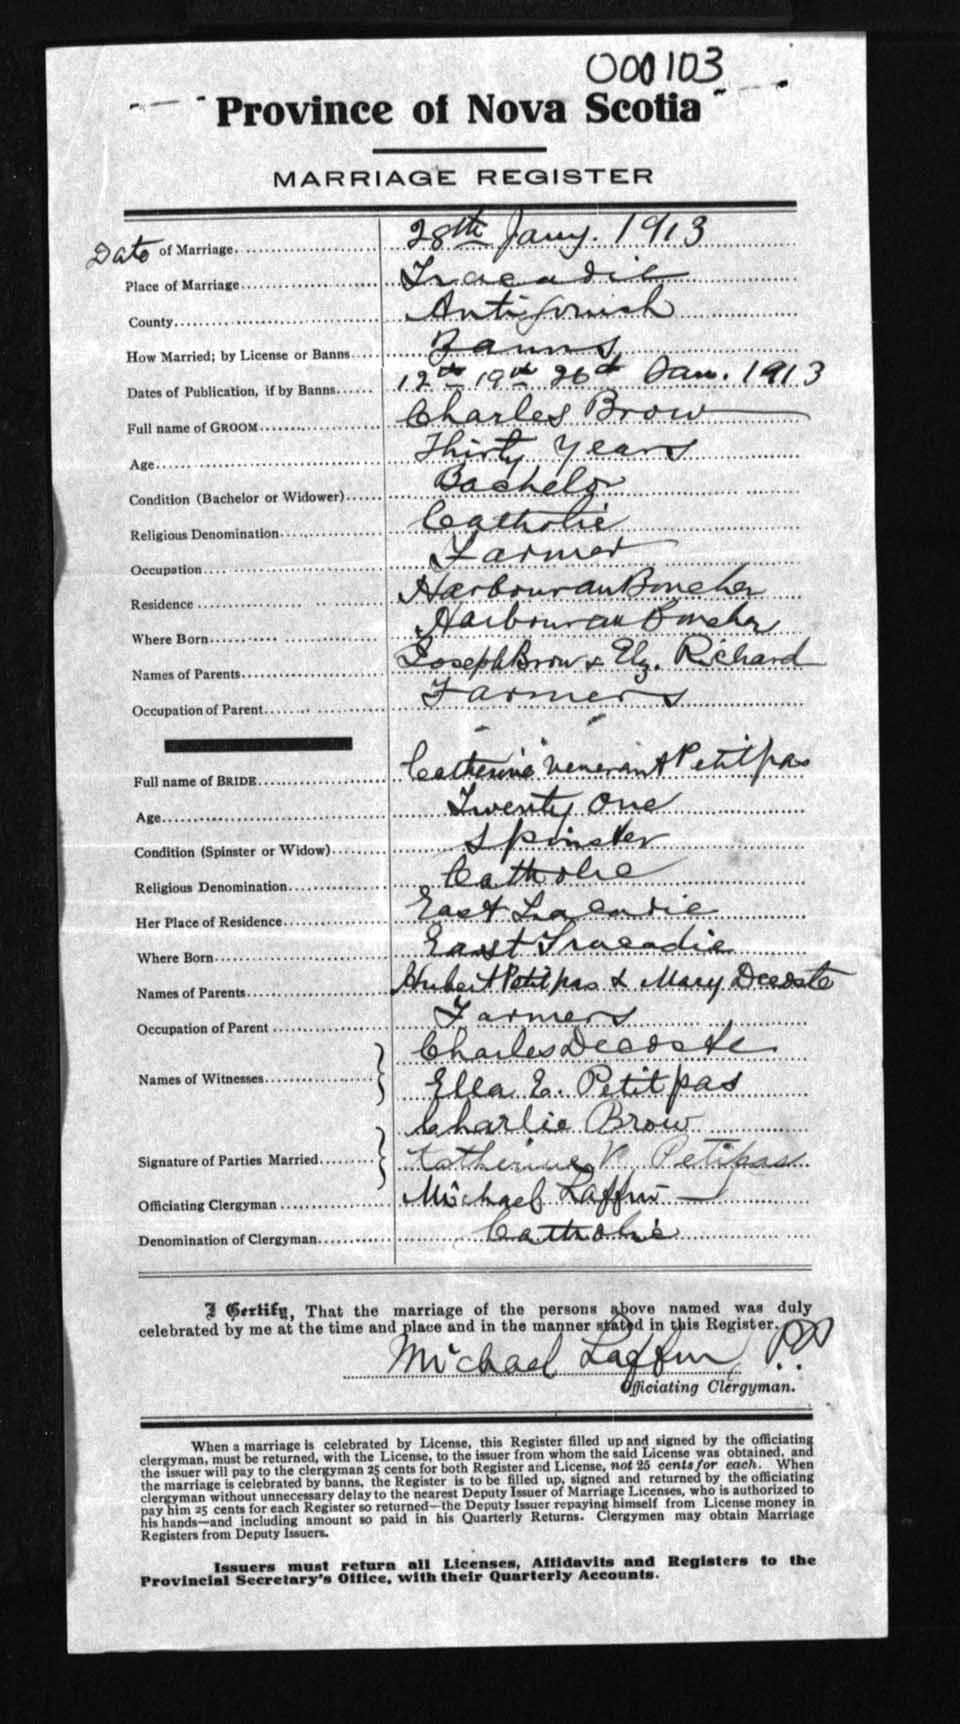 000103
Province of Nova Scotia
MARRIAGE REGISTER
Date of Marriage 28th Jany. 1913
Place of Marriage Tracadie
County Antigonish
How Married; by License or Banns Banns
Dates of Publication, if by Banns 12th 19th 26th Jan. 1913
Full name of GROOM Charles Brow
Age Thirty Years
Condition (Bachelor or Widower) Bachelor
Religious Denomination Catholic
Occupation Farmer
Residence Harbour au Boucher
Where Born Harbour au Boucher
Names of Parents Joseph Brow & Elz. Richard
Occupation of Parent Farmers
Full name of BRIDE Catherine Venerant Petitpas
Age Twenty One
Condition (Spinster or Widow) Spinster
Religious Denomination Catholic
Her Place of Residence East Tracadie
Where Born East Tracadie
Names of Parents Hubert Petitpas & Mary Decoste
Occupation of Parent Farmers
Names of Witnesses Charles Decoste
Ella E. Petitpas
Signature of Parties Married Charlie Brow
Katherine V. Petipas
Officiating Clergyman Michael Laffin
Denomination of Clergyman Catholic
I Certify, That the marriage of the persons above named was duly
celebrated by me at the time and place and in the manner stated in this Register.
Michael Laffin P.P.
Officiating Clergyman.
When a marriage is celebrated by License, this Register filled up and signed by the officiating
clergyman, must be returned, with the License, to the issuer from whom the said License was obtained, and
the issuer will pay to the clergyman 25 cents for both Register and License, not 25 cents for each. When
the marriage is celebrated by banns, the Register is to be filled up, signed and returned by the officiating
clergyman without unnecessary delay to the nearest Deputy Issuer of Marriage Licenses, who is authorized to
pay him 25 cents for each Register so returned—the Deputy Issuer repaying himself from License money in
his hands—and including amount so paid in his Quarterly Returns. Clergymen may obtain Marriage
Registers from Deputy Issuers.
Issuers must return all Licenses, Affidavits and Registers to the
Provincial Secretary's Office, with their Quarterly Accounts.